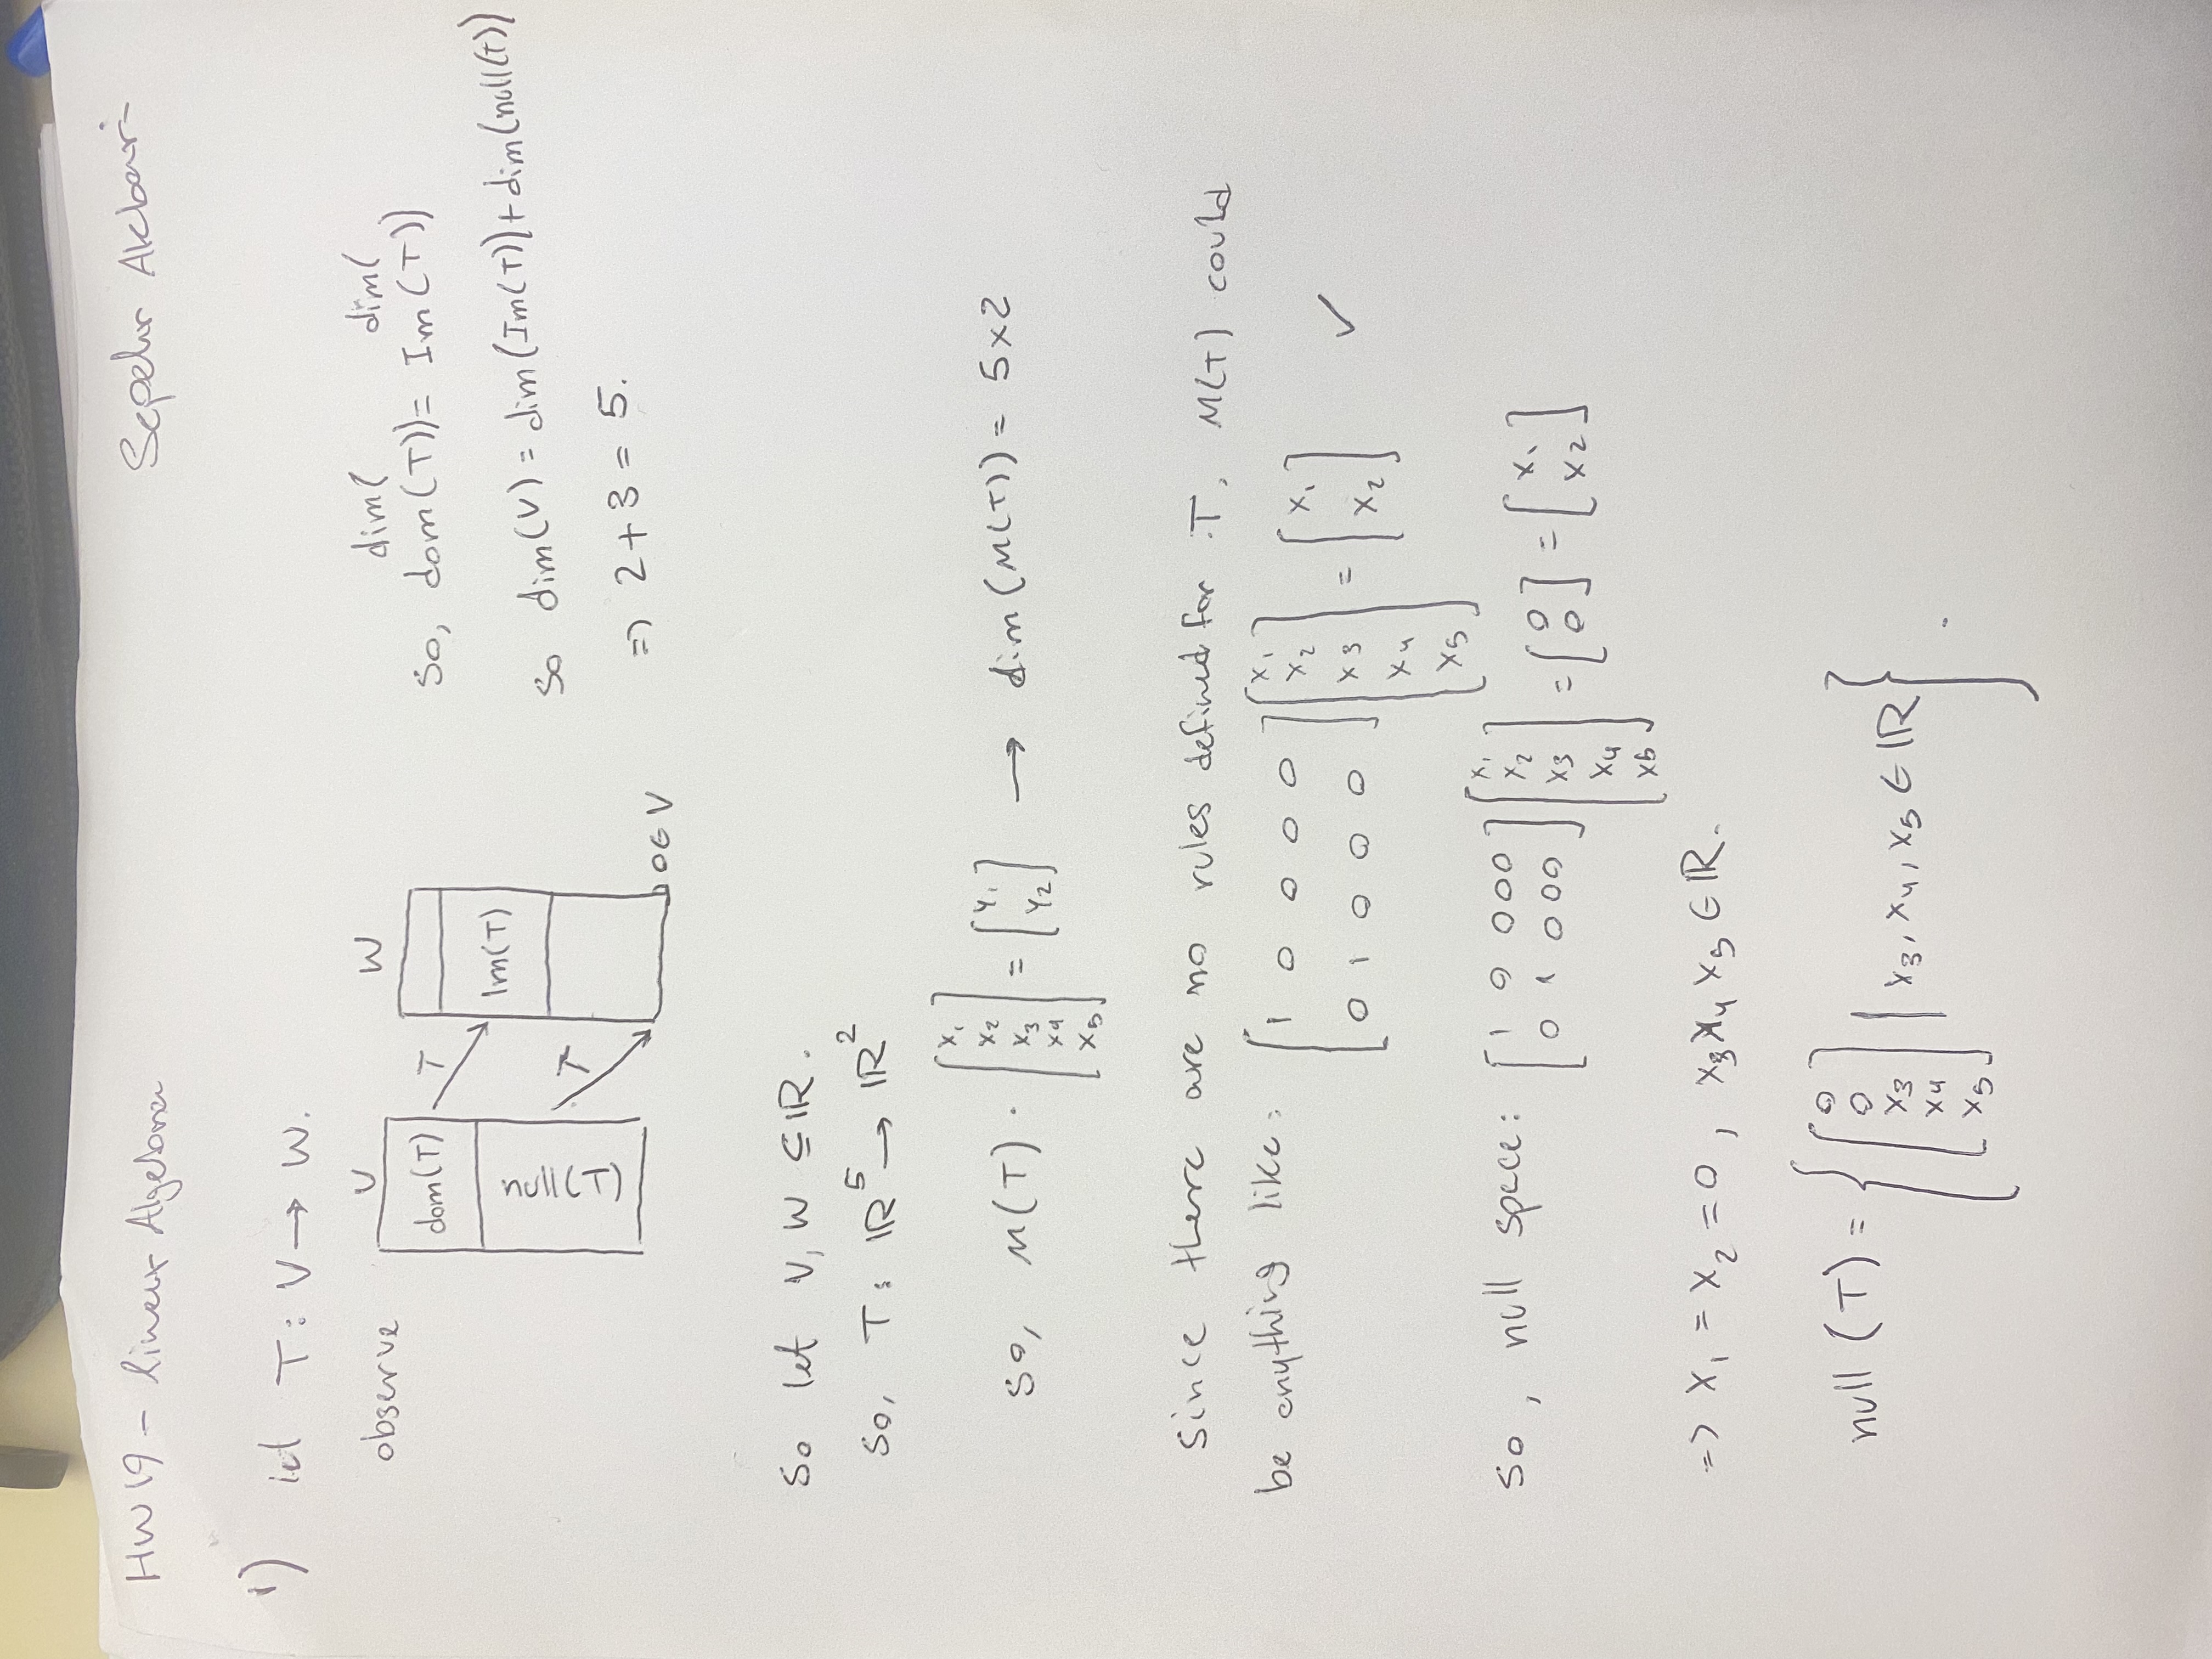 HW 19 - linear Algebra
Sepehr Akbari
1) let T: V → W.
observe
V
W
dom(T)
T
Im(T)
null(T)
T
0 ∈ V
dim( dim(
So, dom(T)) = Im(T))
So dim(V) = dim(Im(T)) + dim(null(T))
=> 2+3 = 5.
So let V, W ⊆ ℝ.
So, T: ℝ^5 → ℝ^2
So, M(T) · [x1 x2 x3 x4 x5] = [y1 y2] → dim(M(T)) = 5×2
Since there are no rules defined for T, M(T) could
be anything like: [1 0 0 0 0; 0 1 0 0 0] [x1 x2 x3 x4 x5] = [x1 x2] ✓
So, null space: [1 0 0 0 0; 0 1 0 0 0] [x1 x2 x3 x4 x5] = [0 0] = [x1 x2]
=> x1 = x2 = 0, x3 x4 x5 ∈ ℝ.
null (T) = { [0 0 x3 x4 x5] | x3, x4, x5 ∈ ℝ } .